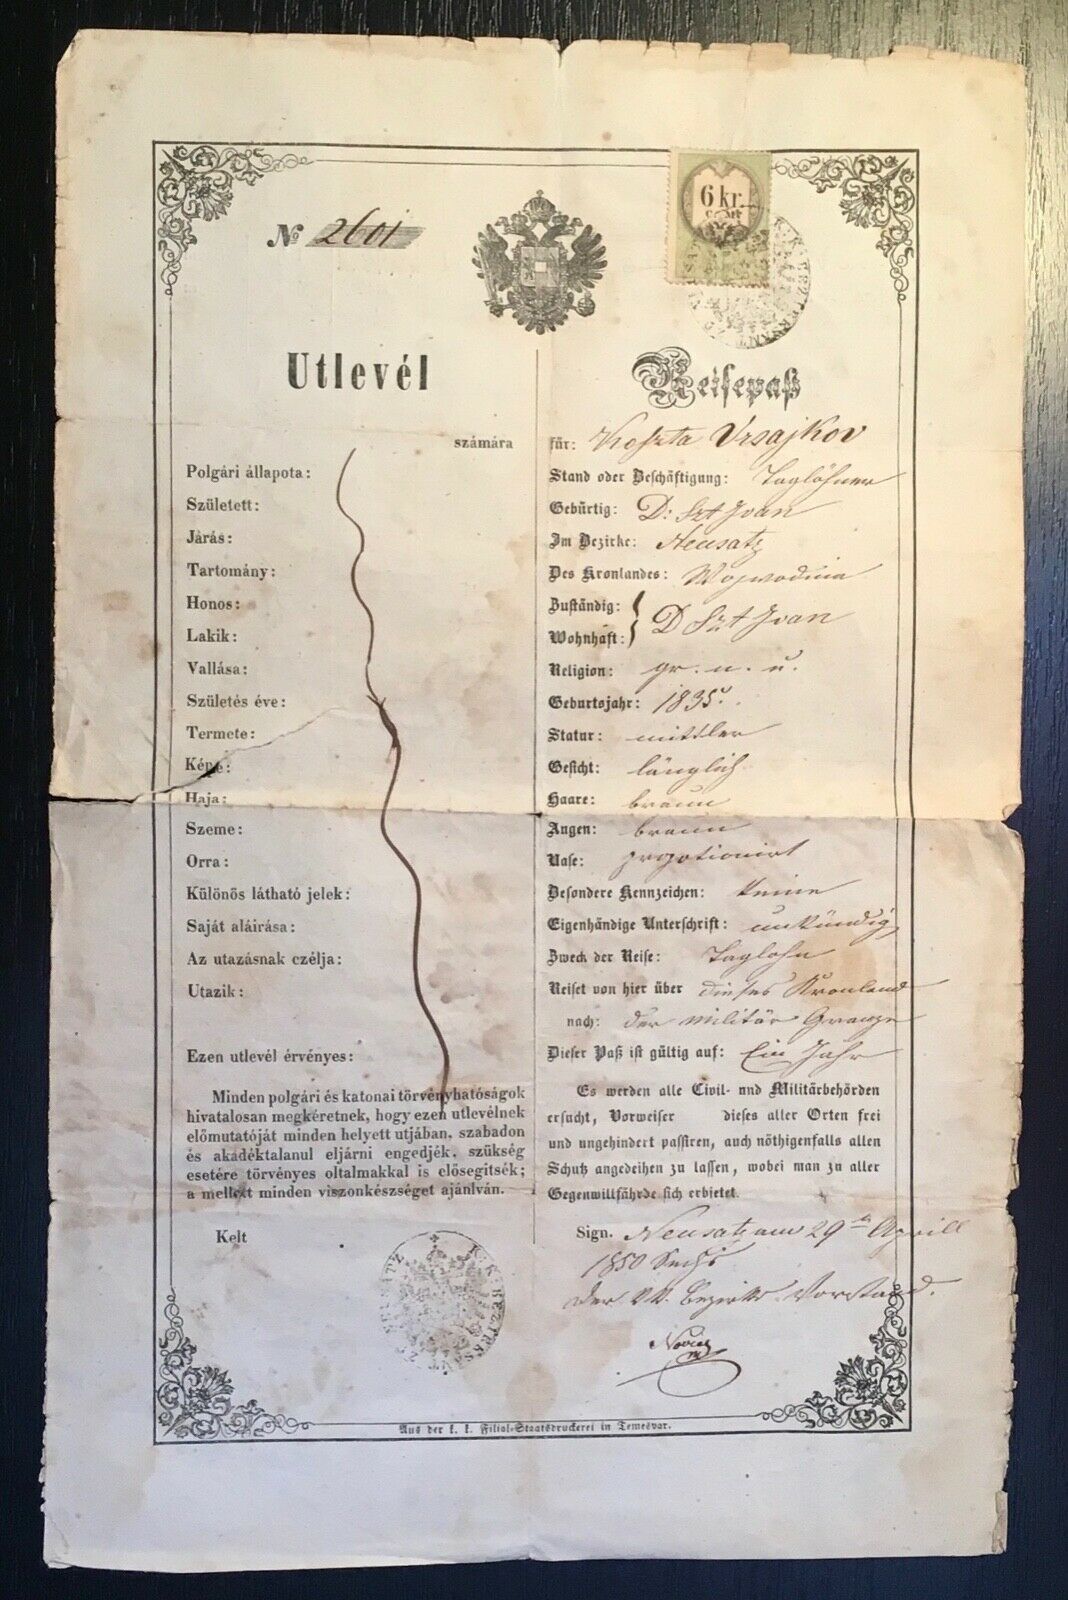 № 2601
6 kr.
Utlevél
Reisepaß
számára
für: Koszta Ursajkov
Polgári állapota:
Stand oder Beschäftigung: Taglöhner
Született:
Gebürtig: D: Szt Ivan
Járás:
Im Bezirke: Neusatz
Tartomány:
Des Kronlandes: Wojwodina
Honos:
Zuständig:
Lakik:
Wohnhaft: D Szt Ivan
Vallása:
Religion: gr. n. u.
Születés éve:
Geburtsjahr: 1835
Termete:
Statur: mittler
Képe:
Gesicht: länglich
Haja:
Haare: braun
Szeme:
Augen: braun
Orra:
Nase: propotionirt
Különös látható jelek:
Besondere Kennzeichen: keine
Saját aláirása:
Eigenhändige Unterschrift: unkündig
Az utazásnak czélja:
Zweck der Reise: Taglohn
Utazik:
Reiset von hier über dieses Kronland
nach: der Militär Granze
Ezen utlevél érvényes:
Dieser Paß ist gültig auf: Ein Jahr
Minden polgári és katonai törvényhatóságok
hivatalosan megkéretnek, hogy ezen utlevélnek
előmutatóját minden helyett utjában, szabadon
és akadéktalanul eljárni engedjék, szükség
esetére törvényes oltalmakkal is elősegitsék;
a mellett minden viszonkészséget ajánlván.
Es werden alle Civil- und Militärbehörden
ersucht, Vorweiser dieses aller Orten frei
und ungehindert passiren, auch nöthigenfalls allen
Schutz angedeihen zu lassen, wobei man zu aller
Gegenwillfährde sich erbietet.
Kelt
Sign. Neusatz am 29 Aprill
1860 Sechs
Der k.k. Bezirks Vorstand.
K. K. BEZIRKSAMT ZU NEUSATZ
Aus der k. k. Filial-Staatsdruckerei in Temesvar.